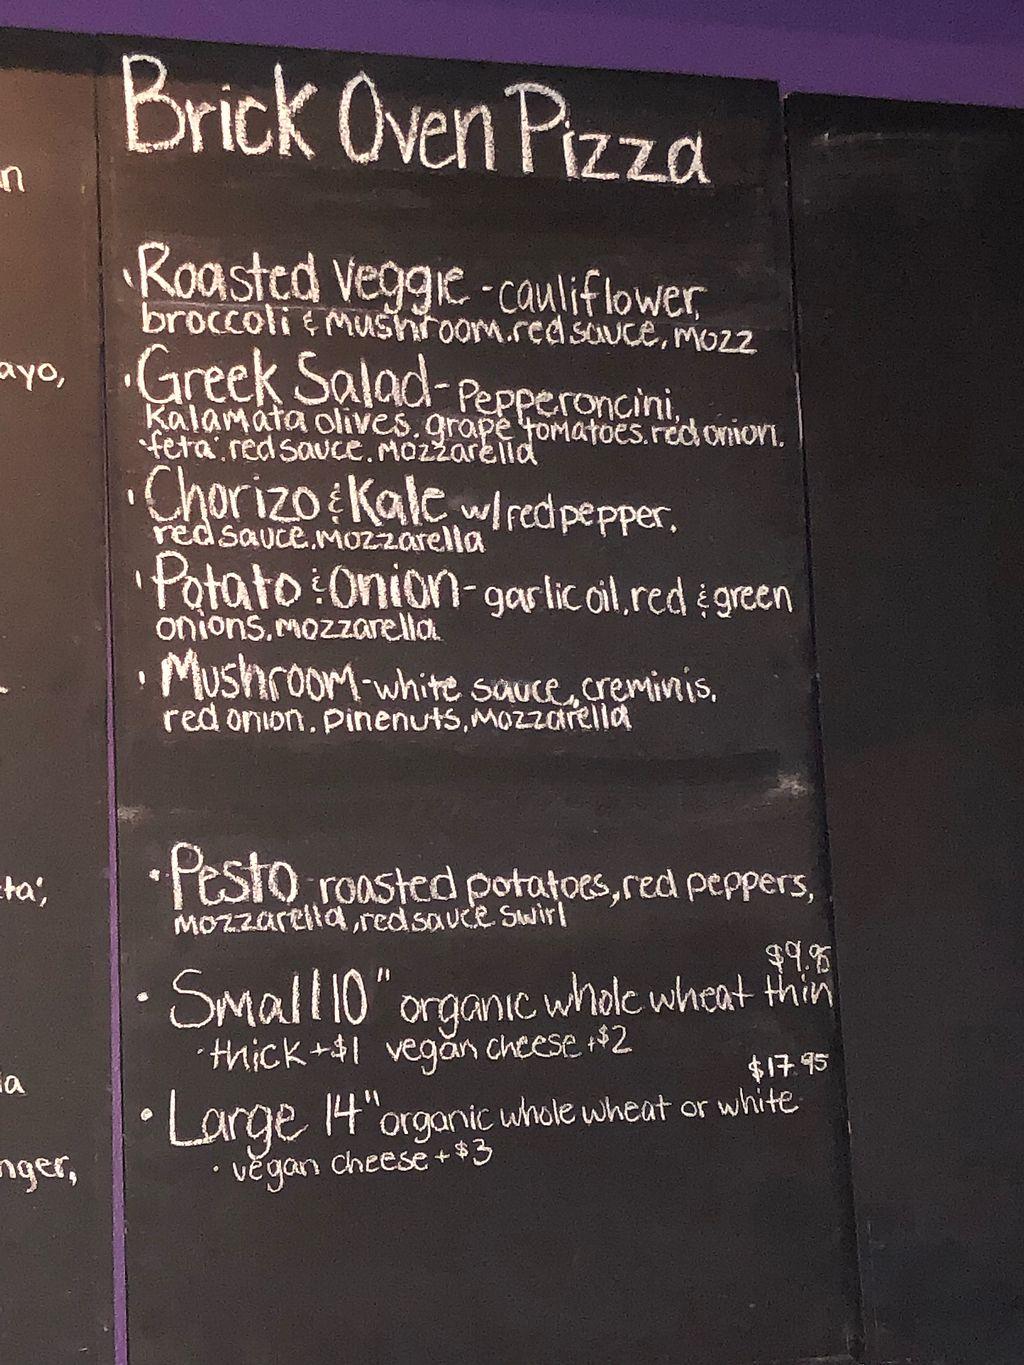 Brick Oven Pizza
· Roasted Veggie - cauliflower,
broccoli & mushroom. red sauce, mozz
· Greek Salad - Pepperoncini,
Kalamata olives, grape tomatoes, red onion,
'feta', red sauce, mozzarella
· Chorizo & Kale w/ red pepper,
red sauce, mozzarella
· Potato & Onion - garlic oil, red & green
onions, mozzarella
· Mushroom - white sauce, creminis,
red onion, pinenuts, mozzarella
· Pesto - roasted potatoes, red peppers,
mozzarella, red sauce swirl
$9.95
· Small 10" organic whole wheat thin
· thick +$1 vegan cheese +$2
$17.95
· Large 14" organic whole wheat or white
· vegan cheese +$3
n
ayo,
ta',
a
nger,